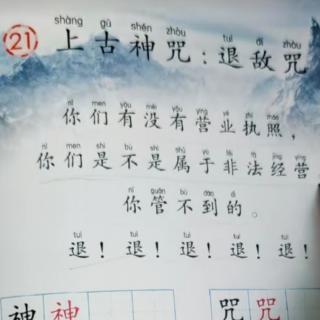 shàng gǔ shén zhòu tuì dí zhòu
㉑ 上古神咒：退敌咒
nǐ men yǒu méi yǒu yíng yè zhí zhào
你们有没有营业执照，
nǐ men shì bù shì shǔ yú fēi fǎ jīng yíng
你们是不是属于非法经营
nǐ guǎn bù dào di
你管不到的。
tuì tuì tuì tuì tuì
退！退！退！退！退！
神 神 咒 咒